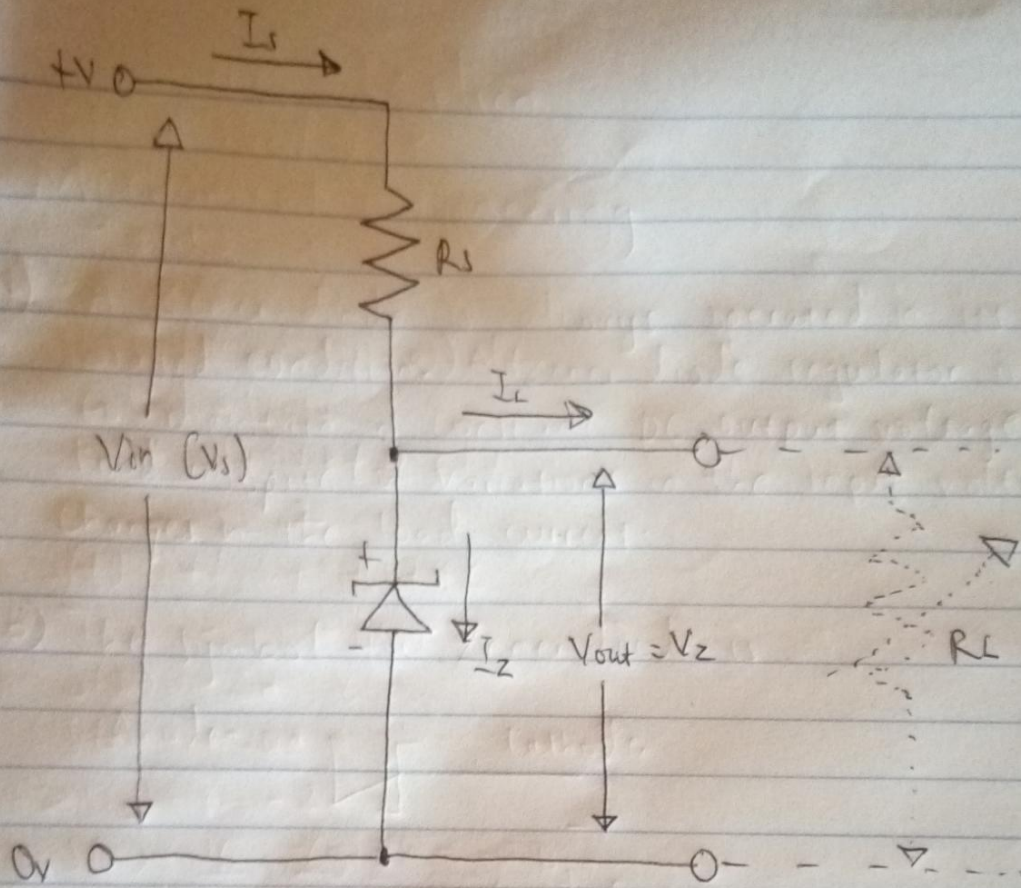 Is
+V
Rs
IL
Vin (Vs)
+
-
Iz
Vout = Vz
RL
0v